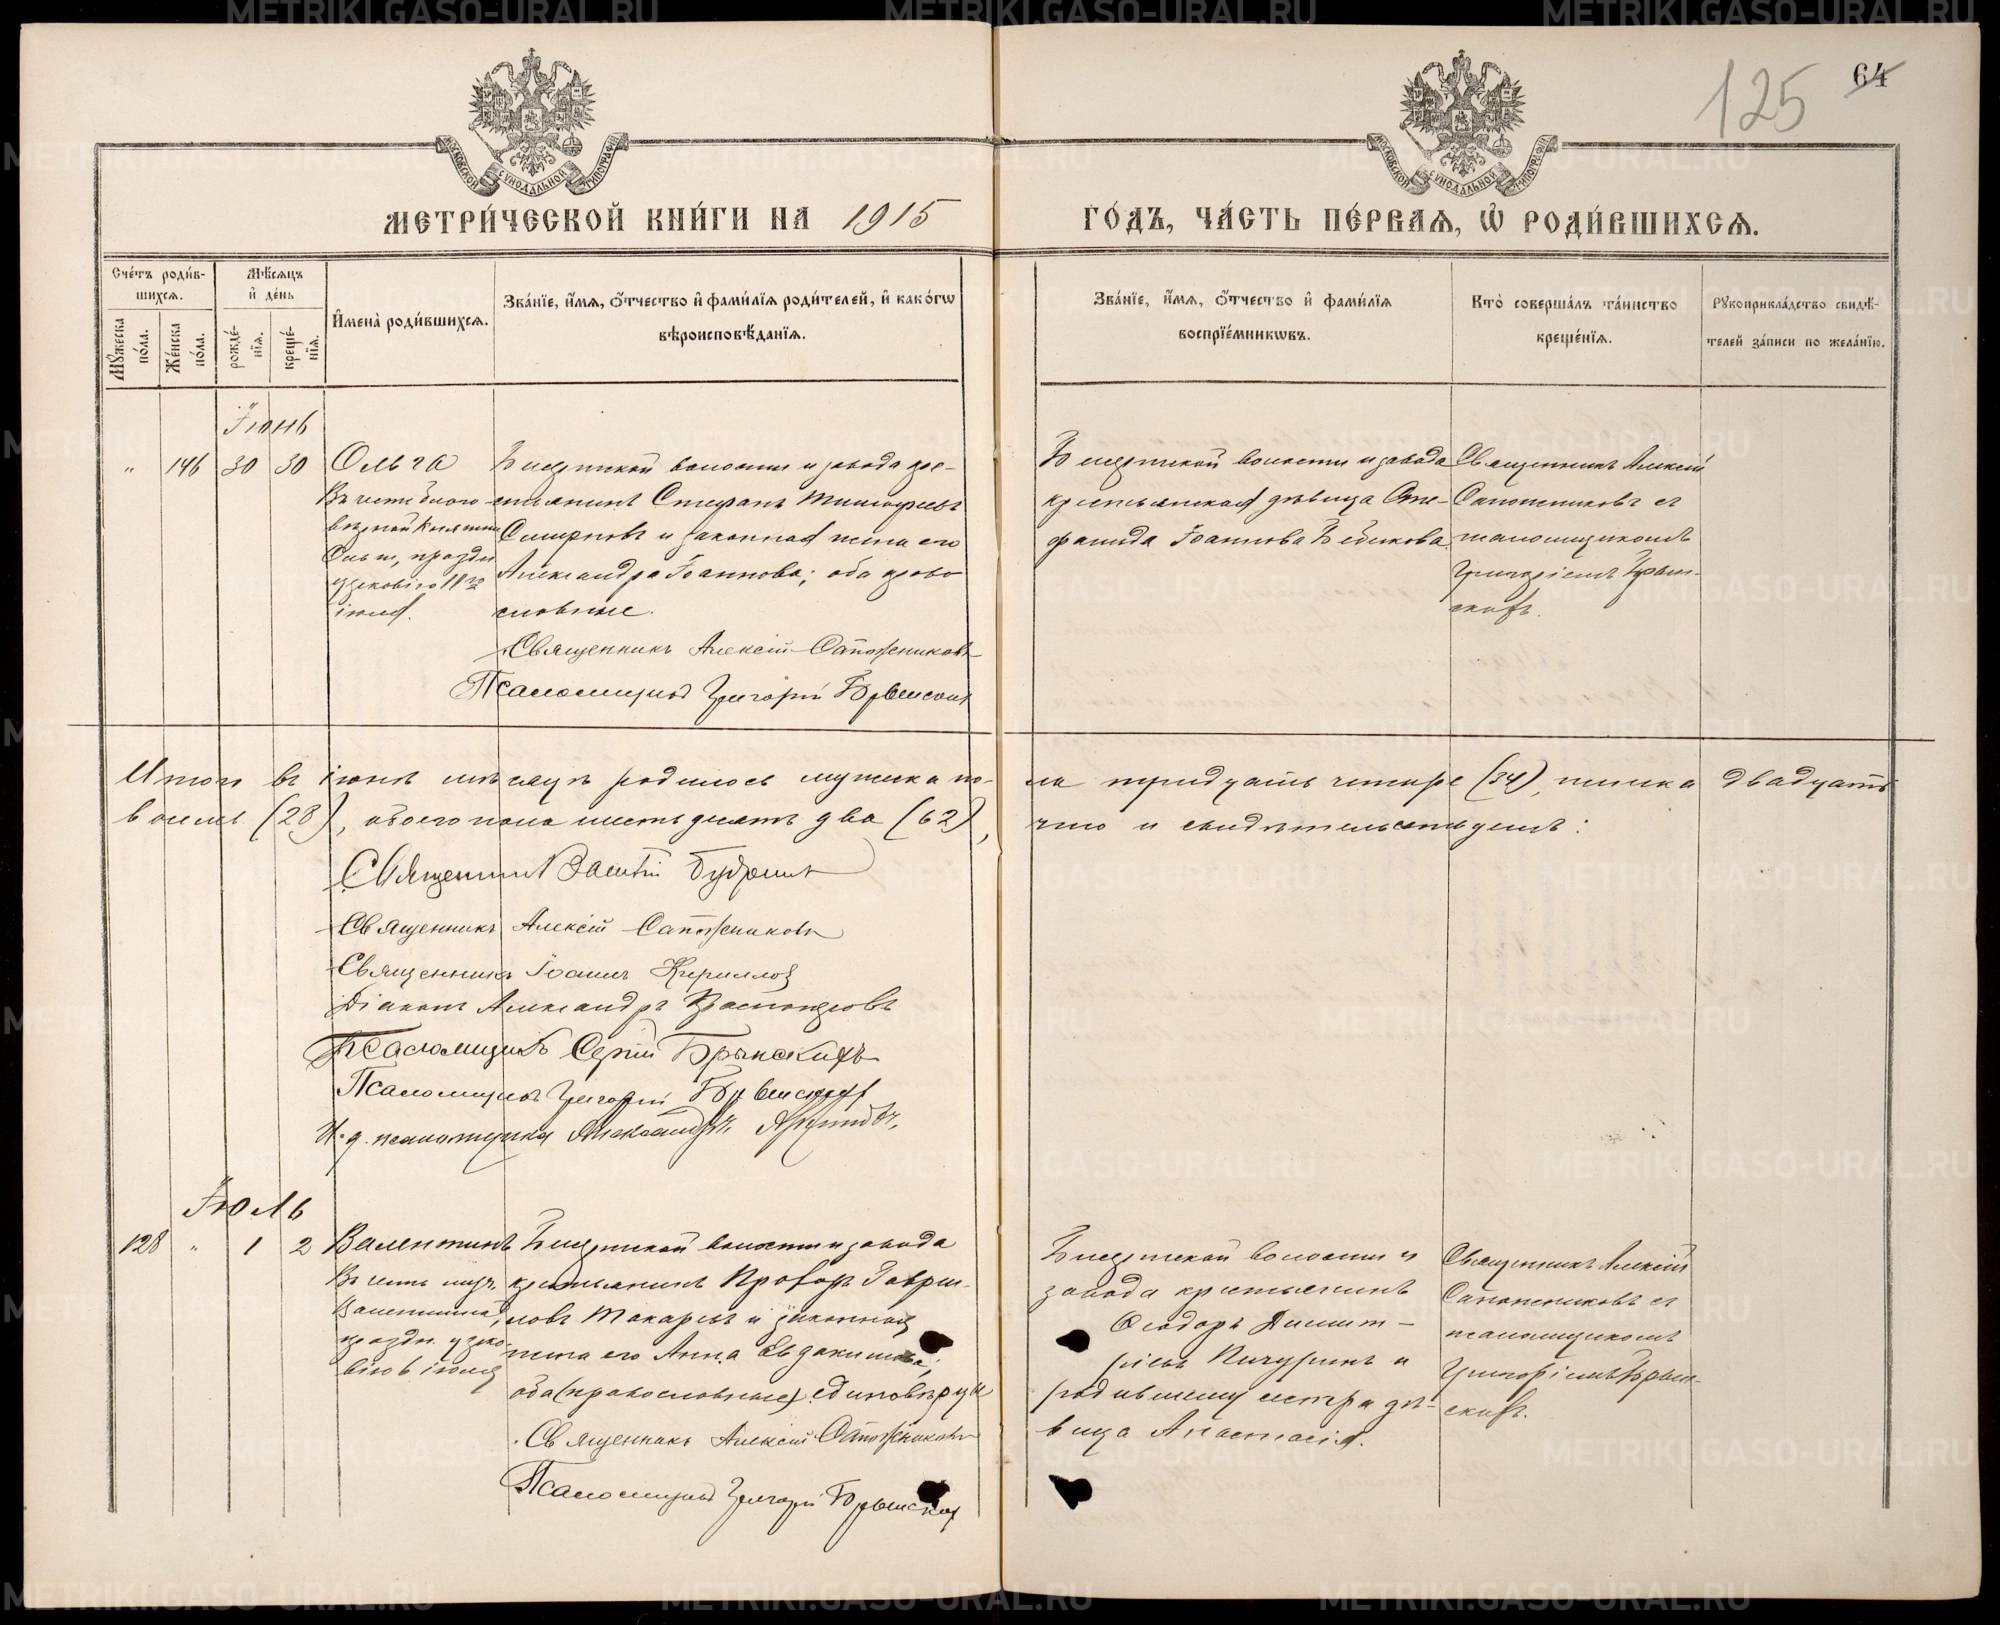 125
64
МОСКОВСКОЙ СѴНОДАЛЬНОЙ ТИПОГРАФІИ
МОСКОВСКОЙ СѴНОДАЛЬНОЙ ТИПОГРАФІИ
МЕТРИ́ЧЕСКОЙ КНИ́ГИ НА 1915
ГО́ДЪ, ЧА́СТЬ ПЕ́РВАѦ, Ѽ РОДИ́ВШИХСѦ.
Сче́тъ роди́в-
шихсѧ.
Мѣ́сѧцъ
и҆ де́нь
Мꙋ́жеска
по́ла.
Же́нска
по́ла.
рожде́-
нїѧ.
креще́-
нїѧ.
И҆мена̀ роди́вшихсѧ.
Зва́нїе, и҆́мѧ, ѻ҆́тчество и҆ фами́лїѧ роди́телей, и҆ како́гѡ
вѣроисповѣ́данїѧ.
Зва́нїе, и҆́мѧ, ѻ҆́тчество и҆ фами́лїѧ
воспрїе́мникѡвъ.
Кто̀ соверша́лъ та́инство
креще́нїѧ.
Рꙋкоприкла́дство свидѣ́-
телей за́писи по жела́нїю.
Іюнь
" 146 30 30 Ольга
Въ честь благо-
вѣрной Княгини
Ольги, праздн
уемовію 11го
іюля.
Бисертской волости и завода кре-
стьянинъ Стефанъ Тимофеевъ
Смирновъ и законная жена его
Александра Іоаннова; оба право
славные.
Священникъ Алексій Сапожниковъ
Псаломщикъ Григорій Брынскихъ
Бисертской волости и завода
крестьянская дѣвица Сте-
фанида Іоаннова
Священникъ Алексій
Сапожниковъ съ
псаломщикомъ
Григоріемъ Брын-
скихъ.
Итого въ іюнѣ мѣсяцѣ родилось мужска по-
ла тридцать четыре (34), женска двадцать
восемь (28), обоего пола шестьдесятъ два (62),
что и свидѣтельствуемъ:
Священникъ
Священникъ Алексій Сапожниковъ
Священникъ Іоаннъ Кирилловъ
Діаконъ Александръ
Псаломщикъ Сергій Брынскихъ
Псаломщикъ Григорій Брынскихъ
И. д. псаломщика Александръ
Іюль
128 " 1 2 Валентинъ
Въ честь муч.
Валентина,
праздн. узако-
вію 6 іюля
Бисертской волости и завода
крестьянинъ Прохоръ Гаври-
ловъ Макаровъ и законная
жена его Анна Евдокимова;
оба (православные) единовѣрцы
Священникъ Алексій Сапожниковъ
Псаломщикъ Григорій Брынскихъ
Бисертской волости и
завода крестьянинъ
Ѳеодоръ Димит-
ріевъ Пичугинъ и
родившему сестра дѣ-
вица Анастасія.
Священникъ Алексій
Сапожниковъ съ
псаломщикомъ
Григоріемъ Брын-
скихъ.